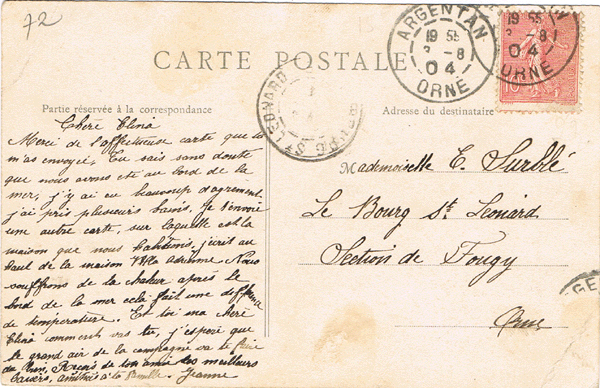 72
CARTE POSTALE
ARGENTAN
19 55
3 -8
04
ORNE
19 55
-8
04
ORNE
10
Partie réservée à la correspondance
Adresse du destinataire
LE BOURG St LEONARD
Chère Elina
Merci de l'affectueuse carte que tu
m'as envoyée. Tu sais sans doute
que nous avons été au bord de la
mer, j'y ai eu beaucoup d'agrément
j'ai pris plusieurs bains, je t'envoie
une autre carte, sur laquelle est la
maison que nous habitions, j'écrit au
haut de la maison Villa Adrienne Nous
souffrons de la chaleur après le
bord de la mer cela fait une différence
de température. Et toi ma chère
Elina comment vas tu, j'espère que
le grand air de la campagne va te faire
du bien, Reçois de ton amie les meilleurs
baisers, amitiés à ta famille. Jeanne
Mademoiselle E. Surblé
Le Bourg St Leonard
Section de Fougy
Orne